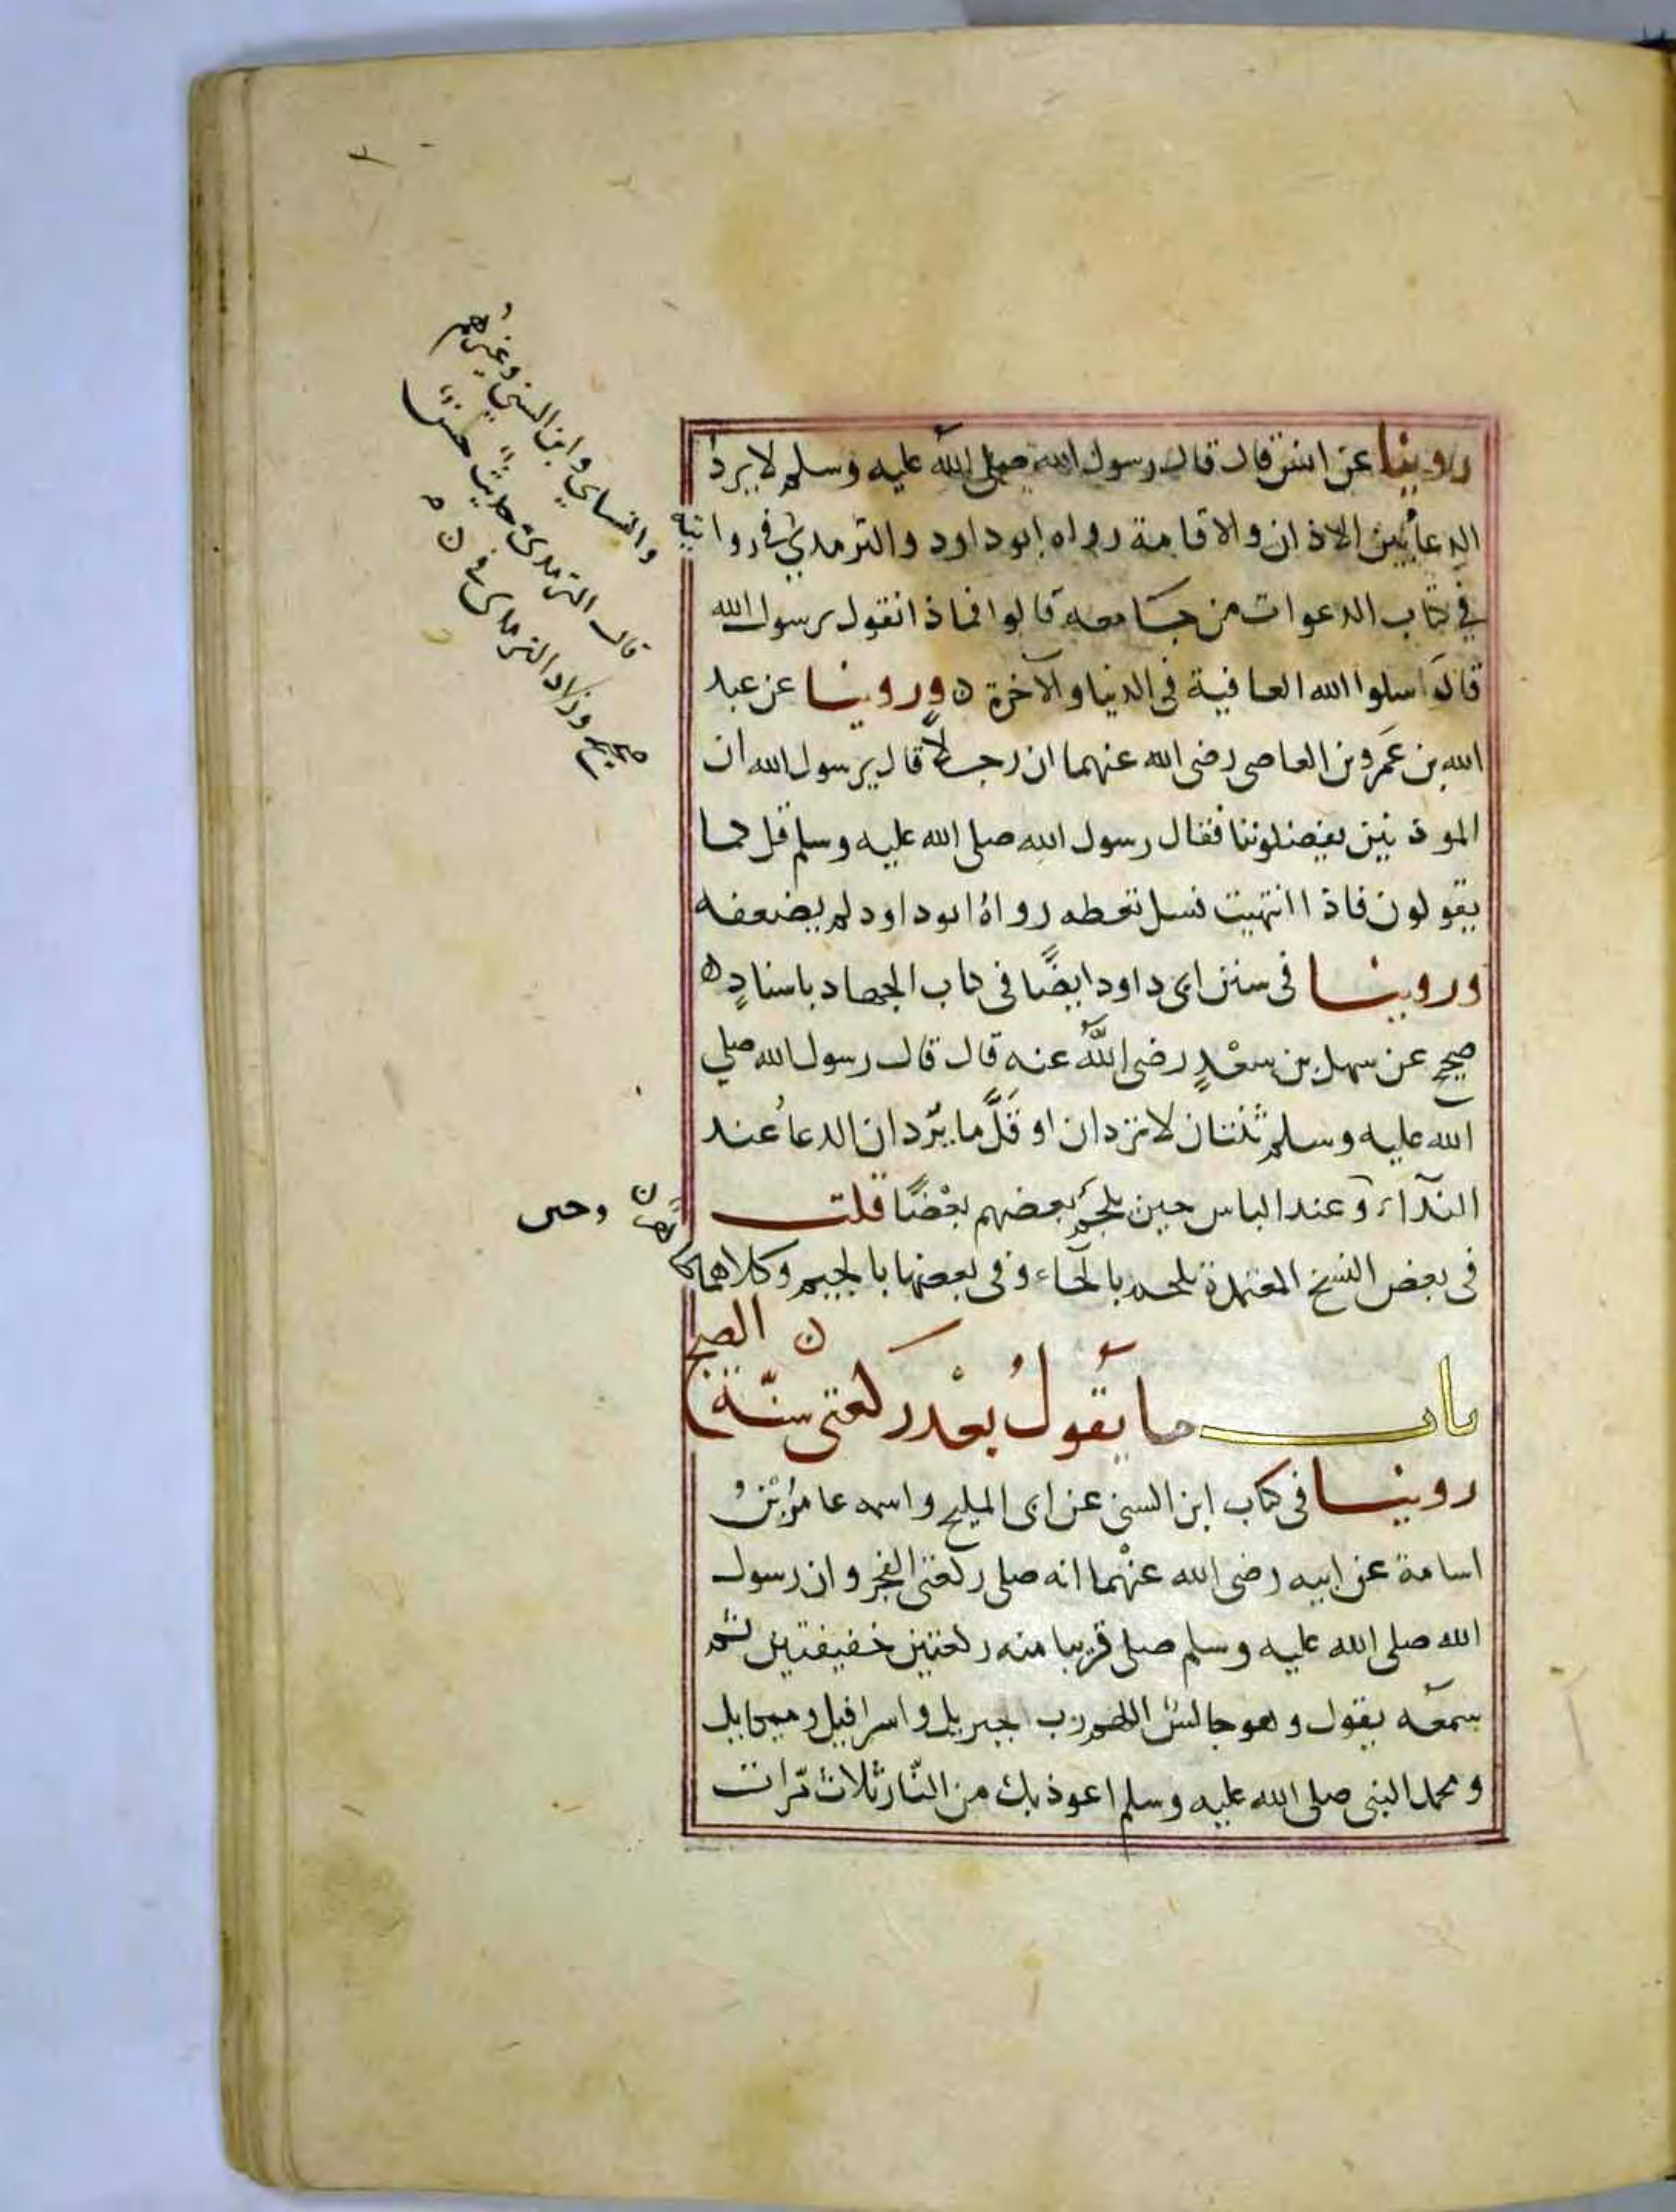 روينا عن انس قال قال رسول الله صلى الله عليه وسلم لا يرد
الدعا بين الاذان والاقامة رواه ابو داود والترمذي في روايته
والنساي وابن السني وغيرهم
قال الترمذي حديث حسن
صحيح وزاد الترمذي في
في كتاب الدعوات من جامعه قالوا فماذا نقول يرسول الله
قال سلوا الله العافية في الدنيا والآخرة ه وروينا عن عبد
الله بن عَمرو بن العاصي رضي الله عنهما ان رجلاً قال يرسول الله ان
الموذنين يفضلوننا فقال رسول الله صلى الله عليه وسلم قل كما
يقولون فاذا انتهيت فسل تعطه رواهُ ابو داود لم يضعفه
وروينا في سنن ابي داود ايضًا في كتاب الجهاد باسنادٍ ه
صحيح عن سهل بن سعْدٍ رضي الله عنه قال قال رسول الله صلي
الله عليه وسلم ثنتان لا تردان او قَلَّ ما يردان الدعاُ عند
النداء وعند الباس حين يلجم بعضهم بعْضًا قلت
في بعض النسخ المعتمدة يلحم بالحاء وفي بعضها بالجيم وكلاهما
باب ما يقولُ بعْد ركعتي سنّة الصبح
روينا في كتاب ابن السني عن ابي المليح واسمه عامر بن
اسامة عن ابيه رضي الله عنْهما انه صلى ركعتي الفجر وان رسول
الله صلى الله عليه وسلم صلى قريبا منه ركعتين خفيفتين ثم
سمعه يقول وهو جالس اللهم رب جبريل واسرافيل وميكايل
ومحمد النبي صلى الله عليه وسلم اعوذ بك من النّار ثلاث مرات